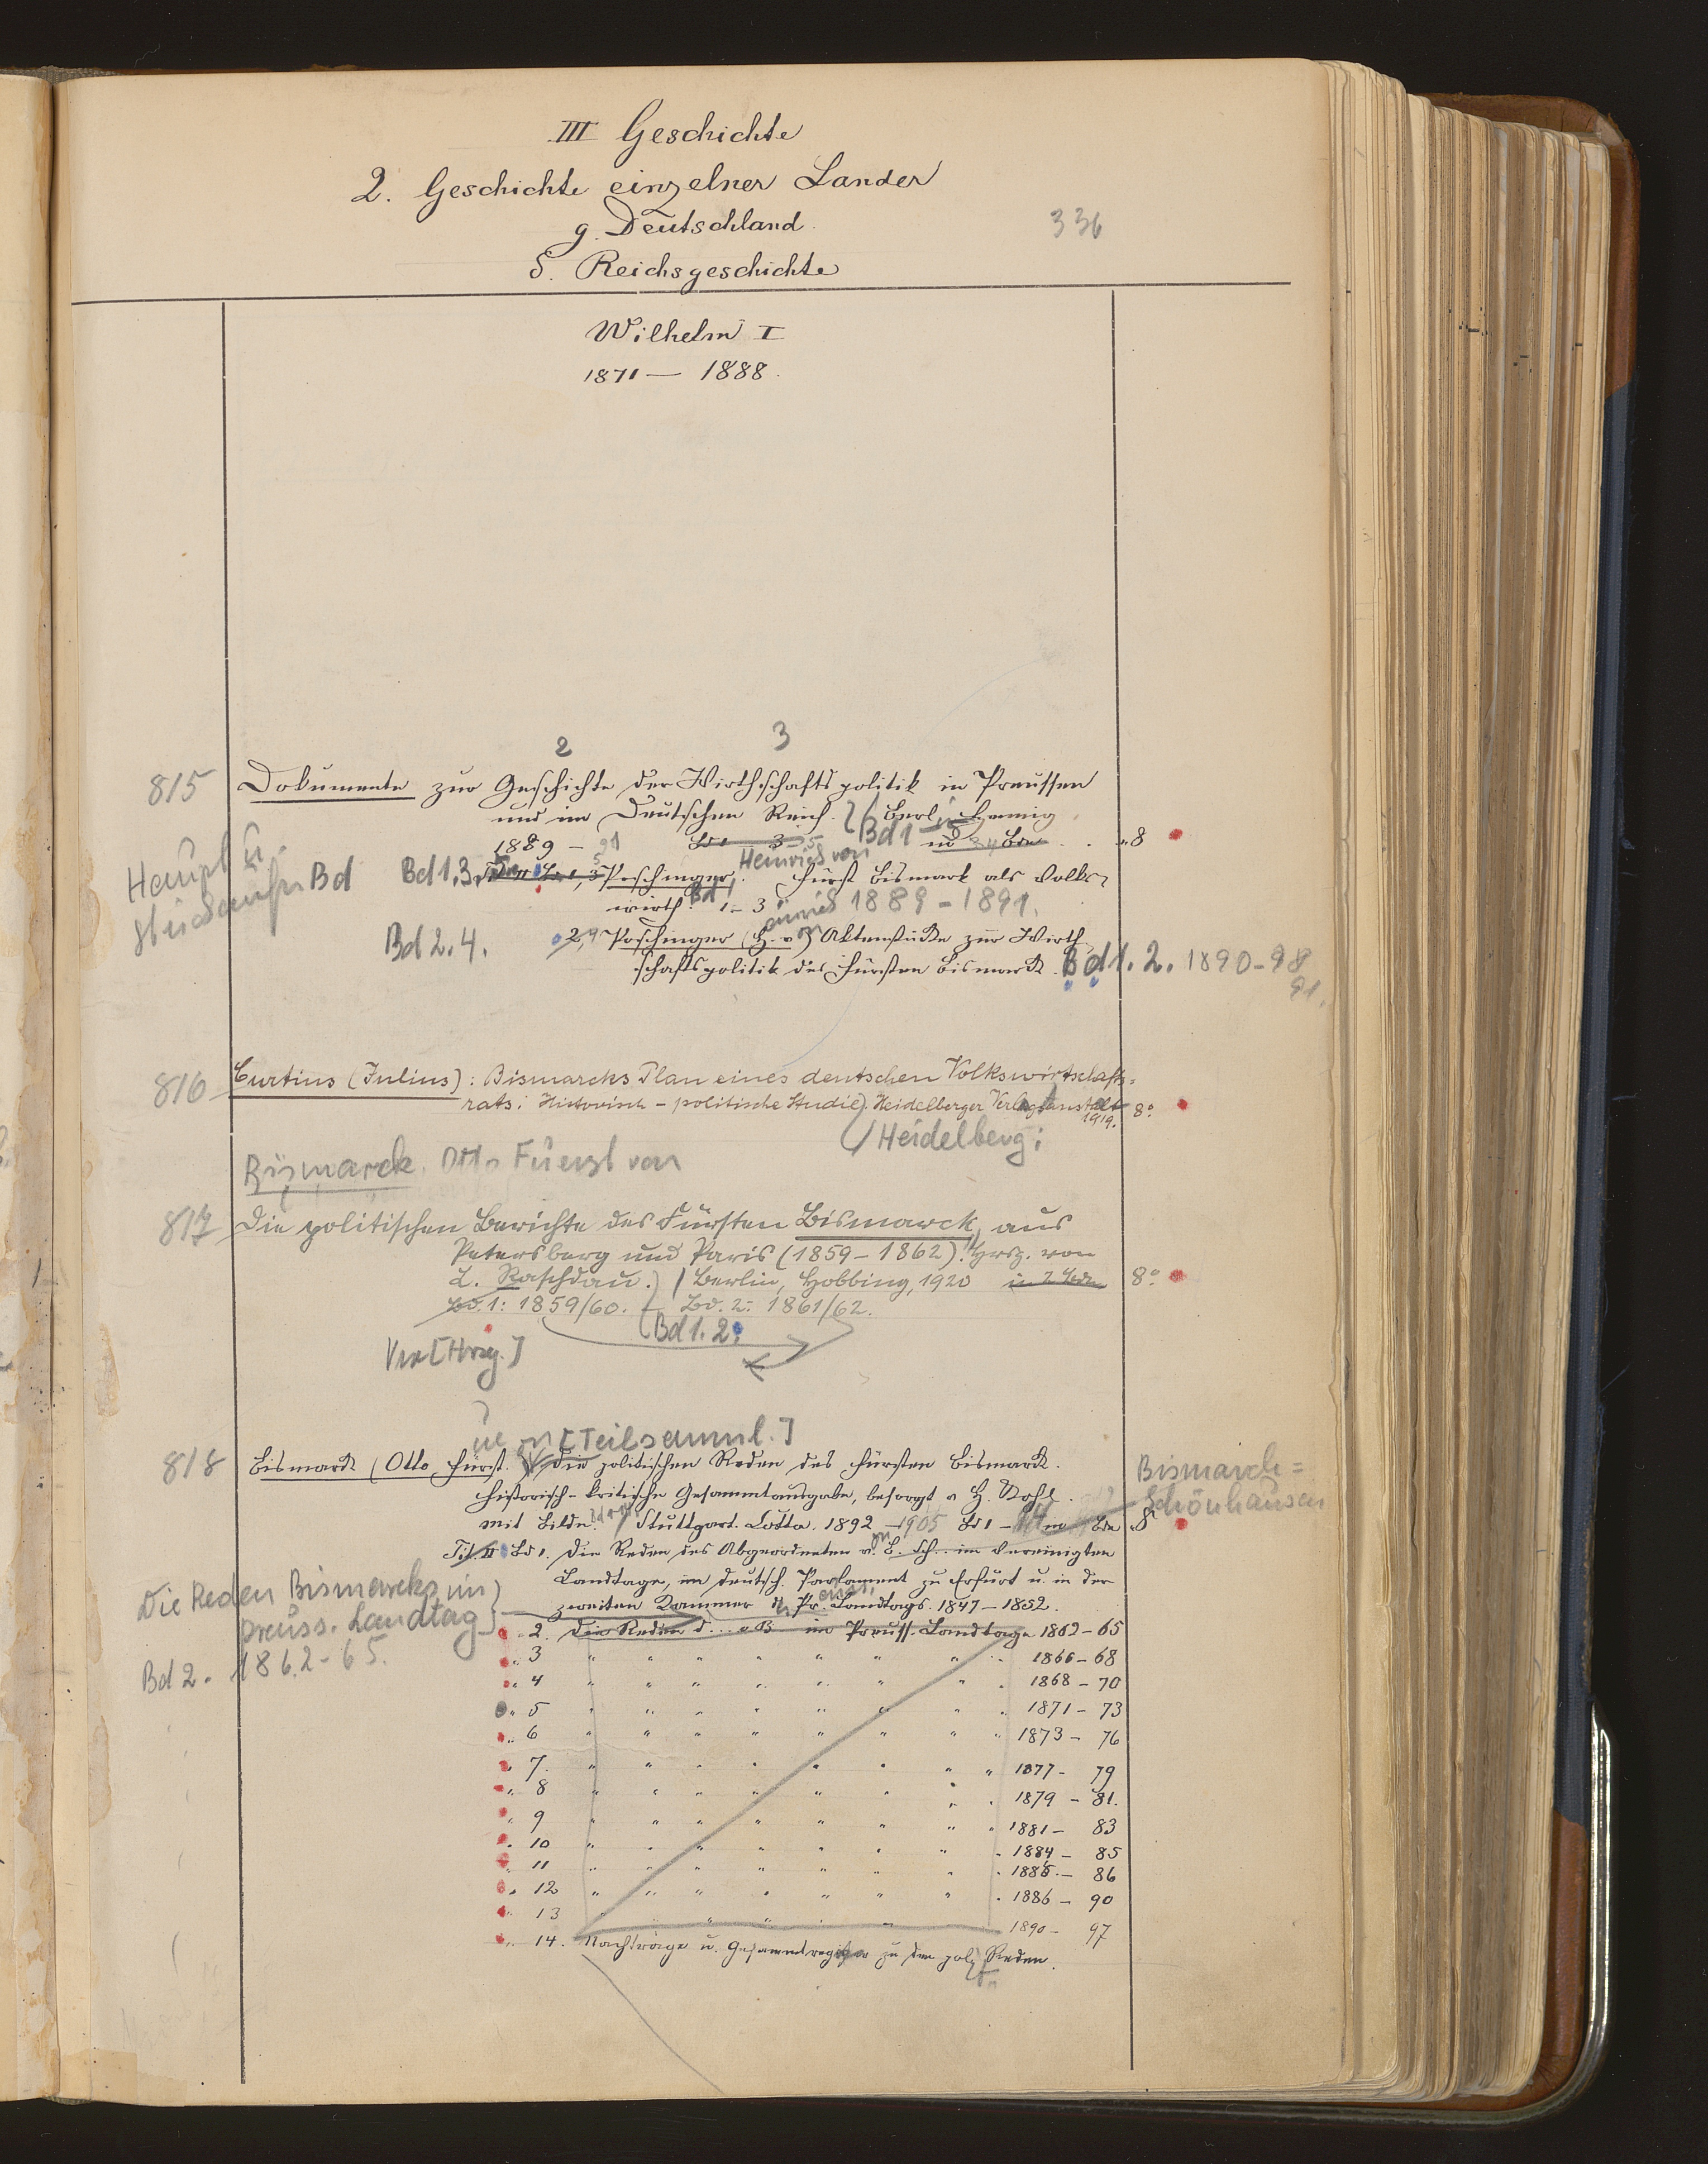 III Geschichte
2. Geschichte einzelner Länder
g. Deutschland.
δ. Reichsgeschichte
336
Wilhelm I
1871 — 1888.
2 3
815 Dokumente zur Geschichte der Wirthschaftspolitik in Preussen
und im Deutschen Reich. Berlin Hennig
1889 – 91 Bd 1 – 3 Bd 1 8
Haupt u. Bd Bd 1.3. Poschinger. Heinrich von Fürst Bismark als Volks-
wirth. Bd 1 – 3 1889 – 1891.
Bd 2.4. 2, 4 Poschinger (H. v.) Aktenstücke zur Wirth
schaftspolitik des Fürsten Bismarck. Bd 1. 2. 1890 – 98
91.
816 Curtius (Julius): Bismarcks Plan eines deutschen Volkswirtschafts=
rats. Historisch – politische Studie. Heidelberger Verlagsanstalt 1919. 8°
Heidelberg:
Bismarck. Otto Fuerst von
817 Die politischen Berichte des Fürsten Bismarck, aus
Petersburg und Paris (1859 – 1862). Hrsg. von
L. Raschdau. Berlin, Hobbing, 1920 in 2 Bdn 8°
Bd. 1: 1859/60. – Bd. 2: 1861/62.
Bd 1. 2.
[Hrsg.]
[Teilsamml.]
818 Bismarck (Otto Fürst. Die politischen Reden des Fürsten Bismarck. Bismarck=
Historisch-kritische Gesammtausgabe, besorgt v H. Kohl. Schönhausen
Mit Bildn. Stuttgart. Cotta. 1892 – 1905 Bd 1 – 14 8°
Tit II Bd 1. Die Reden des Abgeordneten v. B. Sch.. im Vereinigten
Landtage, im deutsch. Parlament zu Erfurt u. in der
zweiten Kammer d. Pr. Landtags. 1847 – 1852.
Die Reden Bismarcks im
preuss. Landtag
Bd 2. 1862 – 65.
„ 2. Die Reden d... v B im Preuss. Landtage 1862 – 65
„ 3 „ „ „ „ „ „ „ „ 1866 – 68
„ 4 „ „ „ „ „ „ „ „ 1868 – 70
„ 5 „ „ „ „ „ „ „ „ 1871 – 73
„ 6 „ „ „ „ „ „ „ „ 1873 – 76
„ 7. „ „ „ „ „ „ „ „ 1877 – 79
„ 8 „ „ „ „ „ „ „ „ 1879 – 81.
„ 9 „ „ „ „ „ „ „ „ 1881 – 83
„ 10 „ „ „ „ „ „ „ „ 1884 – 85
„ 11 „ „ „ „ „ „ „ „ 1885 – 86
„ 12 „ „ „ „ „ „ „ „ 1886 – 90
„ 13 „ „ „ „ „ „ 1890 – 97
„ 14. Nachträge u. Gesammtregister zu den pol. Reden.